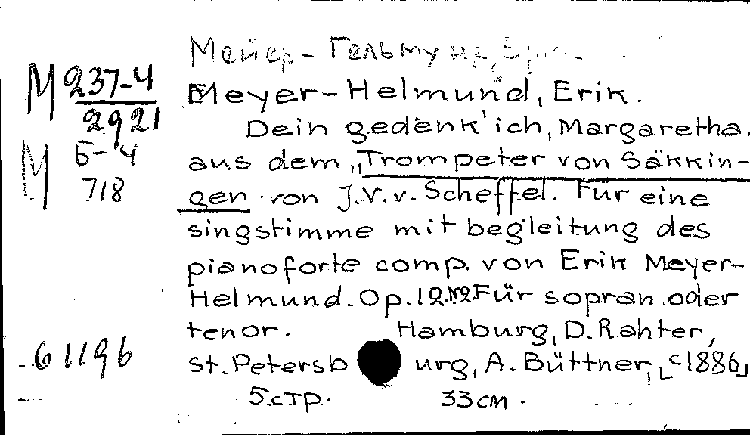 Мейер-Гельмунд, Эрик.
М 237-4
2921
Meyer-Helmund, Erik.
Dein gedenk' ich, Margaretha.
М Б-4
718
aus dem „Trompeter von Säkkin-
gen von J.V.v. Scheffel. Für eine
singstimme mit begleitung des
pianoforte comp. von Erik Meyer-
Helmund. Op.12. Für sopran oder
tenor. Hamburg, D. Rahter,
61196
st. Petersburg, A. Büttner, [c1886]
5 стр. 33 см.